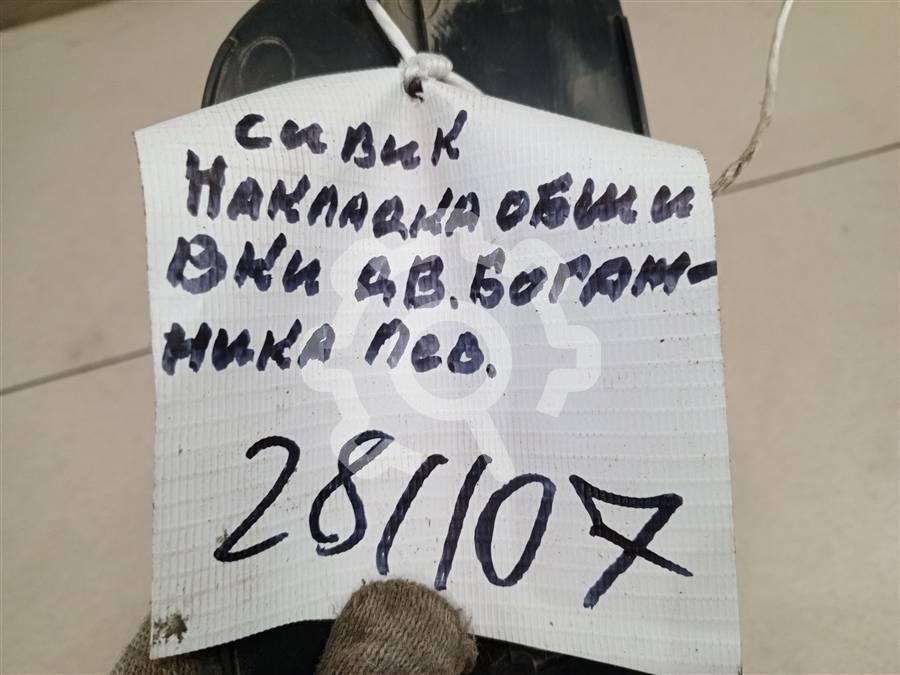 Сивик
Накладка обши
вки дв. Богаж-
ника лев.
28/107